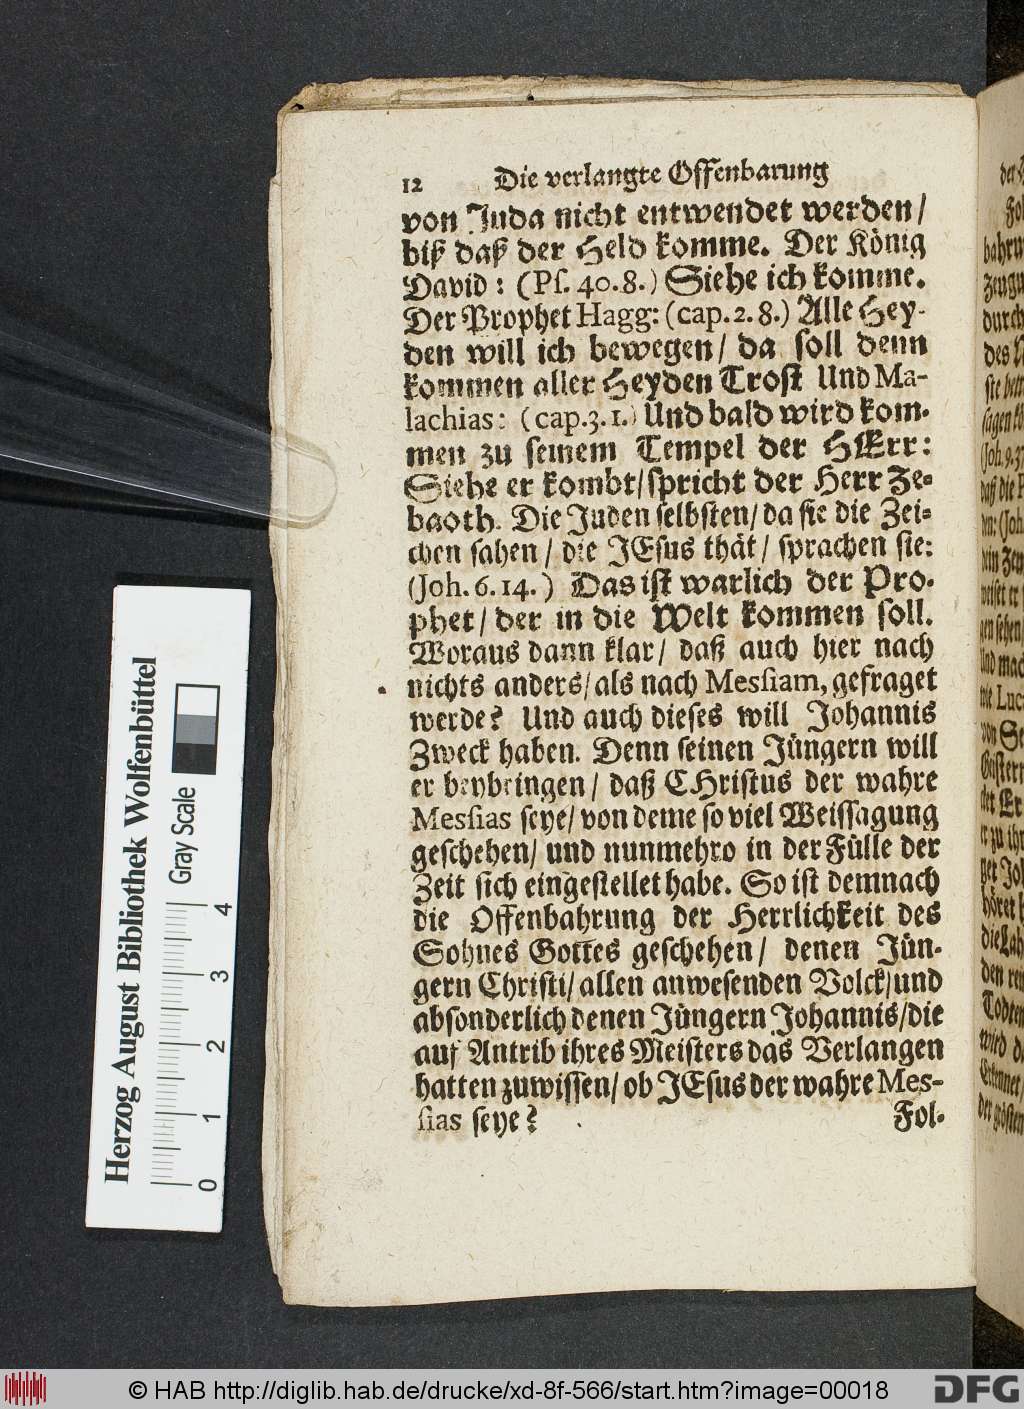 12 Die verlangte Offenbarung
von Juda nicht entwendet werden/
biß daß der Held komme. Der König
David: (Ps. 40. 8.) Siehe ich komme.
Der Prophet Hagg: (cap. 2. 8.) Alle Hey-
den will ich bewegen/ da soll denn
kommen aller Heyden Trost Und Ma-
lachias: (cap. 3. 1.) Und bald wird kom-
men zu seinem Tempel der HErr:
Siehe er kombt/ spricht der Herr Ze-
baoth. Die Juden selbsten/ da sie die Zei-
chen sahen/ die JEsus thät/ sprachen sie:
(Joh. 6. 14.) Das ist warlich der Pro-
phet/ der in die Welt kommen soll.
Woraus dann klar/ daß auch hier nach
nichts anders/ als nach Messiam, gefraget
werde? Und auch dieses will Johannis
Zweck haben. Denn seinen Jüngern will
er beybringen/ daß CHristus der wahre
Messias seye/ von deme so viel Weissagung
geschehen/ und nunmehro in der Fülle der
Zeit sich eingestellet habe. So ist demnach
die Offenbahrung der Herrlichkeit des
Sohnes Gottes geschehen/ denen Jün-
gern Christi/ allen anwesenden Volck/ und
absonderlich denen Jüngern Johannis/ die
auf Antrib ihres Meisters das Verlangen
hatten zuwissen/ ob JEsus der wahre Mes-
sias seye?
Fol-
Herzog August Bibliothek Wolfenbüttel
Gray Scale
0 1 2 3 4
© HAB http://diglib.hab.de/drucke/xd-8f-566/start.htm?image=00018
DFG